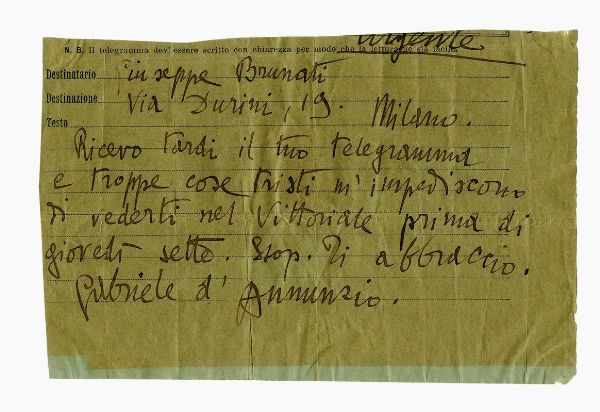 urgente
N. B. Il telegramma dev' essere scritto con chiarezza per modo che la lettura ne sia facile.
Destinatario Giuseppe Brunati
Destinazione Via Durini, 19.
Testo Milano.
Ricevo tardi il tuo telegramma
e troppe cose tristi m' impediscono
di vederti nel Vittoriale prima di
giovedì sette. Stop. Ti abbraccio.
Gabriele d' Annunzio.